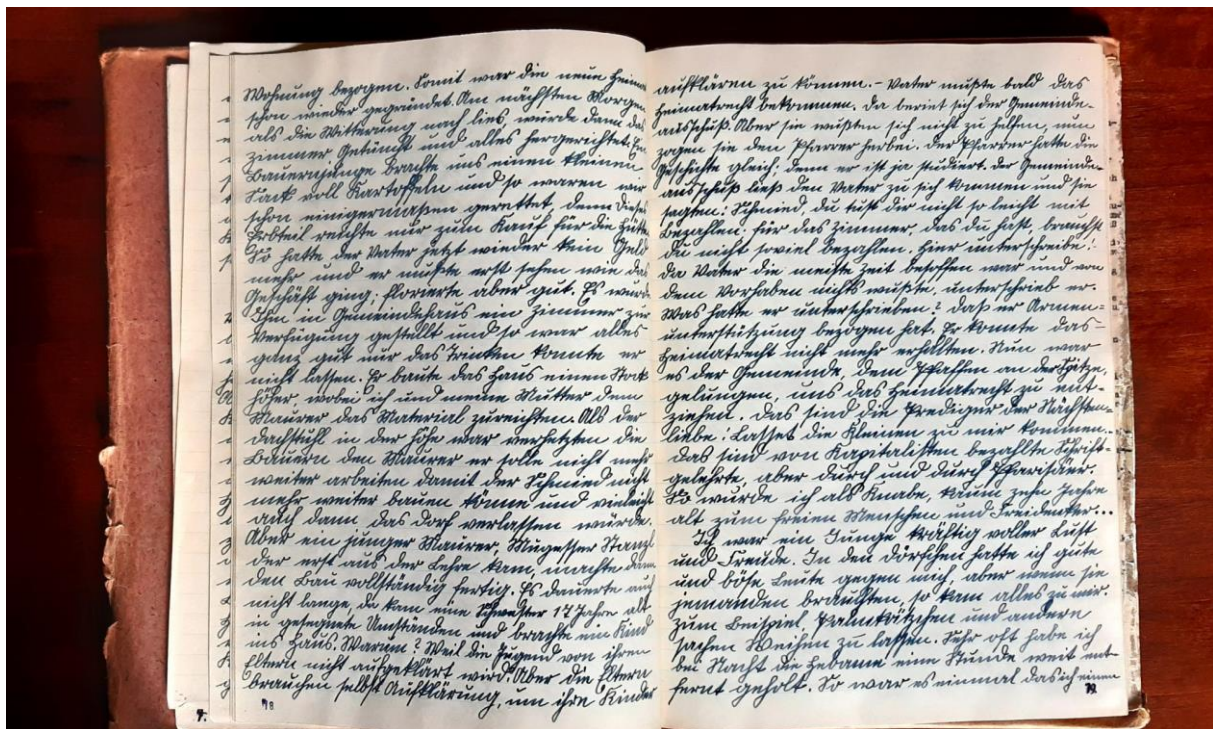 Wohnung bezogen. Somit war die neue Heimat
schon wieder gegründet. Am nächsten Morgen
als die Witterung nach lies, wurde dann das
Zimmer Getüncht und alles hergerichtet. Ein
Bauernjunge Brachte uns einen kleinen
Sack voll Kartoffeln und so waren wir
schon einigermaßen gerettet, denn dieses
Erbteil reichte nur zum Kauf für die Hütte
So hatte der Vater jetzt wieder kein Geld
mehr und er mußte erst sehen wie das
Geschäft ging; florierte aber gut. Es wurde
Ihm in Gemeindehaus ein Zimmer zur
Verfügung gestellt und so war alles
ganz gut nur das Trinken konnte er
nicht lassen. Er baute das Haus einen Stock
höher, wobei ich und meine Mutter dem
Maurer das Material zureichten. Als der
Dachstuhl in der Höhe war verhetzten die
Bauern den Maurer er solle nicht mehr
weiter arbeiten damit der Schmied nicht
mehr weiter bauen könne und vielleicht
auch dann das Dorf verlassen würde.
Aber ein junger Maurer, Stanzl
der erst aus der Lehre kam, machte dann
den Bau vollständig fertig. Es dauerte auch
nicht lange, da kam eine Schwester 17 Jahre alt
in gesegnete Umständen und brachte ein Kind
ins Haus. Warum? Weil die Jugend von ihren
Eltern nicht aufgeklärt wird. Aber die Eltern
brauchen selbst Aufklärung, um ihre Kinder
78
aufklären zu können. – Vater mußte bald das
Heimatrecht bekommen. Da beriet sich der Gemeinde-
ausschuß. Aber sie wußten sich nicht zu helfen, nun
zogen sie den Pfarrer herbei. Der Pfarrer hatte die
Geschichte gleich; denn er ist ja studiert. Der Gemeinde-
ausschuß ließ den Vater zu sich kommen und sie
sagten: Schmied, du tust dir nicht so leicht mit
Bezahlen. Für das Zimmer, das du hast, brauchst
du nicht soviel bezahlen. Hier unterschreibe!
Da Vater die meiste Zeit besoffen war und von
dem Vorhaben nichts wußte, unterschrieb er.
Was hatte er unterschrieben? Daß er Armen-
unterstützung bezogen hat. Er konnte das-
Heimatrecht nicht mehr erhalten. Nun war
es der Gemeinde, dem Pfaffen an der Spitze,
gelungen, uns das Heimatrecht zu ent-
ziehen. Das sind die Prediger der Nächsten-
liebe! Lasset die Kleinen zu mir kommen..
Das sind von Kapitalisten bezahlte Schrift-
gelehrte, aber durch und durch Pharisäer.
So wurde ich als Knabe, kaum zehn Jahre
alt zum freien Menschen und Freidenker...
Ich war ein Junge kräftig voller Lust
und Freude. In den Dörfchen hatte ich gute
und böse Leute gegen mich, aber wenn sie
jemanden brauchten, so kam alles zu mir.
Zum Beispiel, Palmkätzchen und andere
sachen Weihen zu lassen. Sehr oft habe ich
bei Nacht die Hebame eine Stunde weit ent-
fernt geholt. So war es einmal das ich einen
79